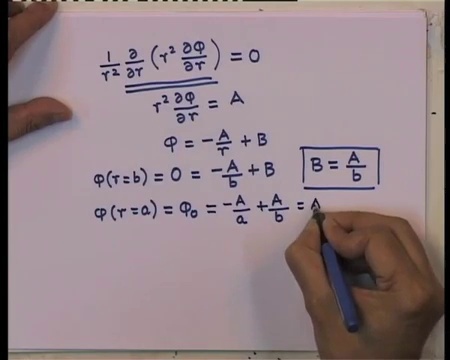 1/r² ∂/∂r (r² ∂Φ/∂r) = 0
r² ∂Φ/∂r = A
φ = -A/r + B
φ(r=b) = 0 = -A/b + B
B = A/b
φ(r=a) = Φ₀ = -A/a + A/b = A